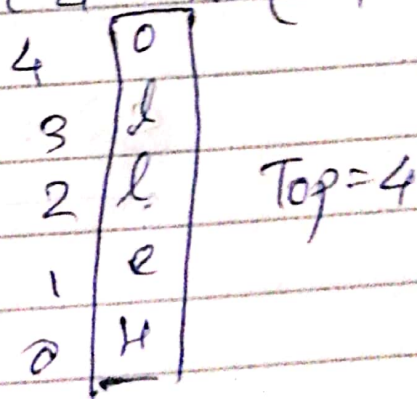 4 o
3 l
2 l Top=4
1 e
0 H